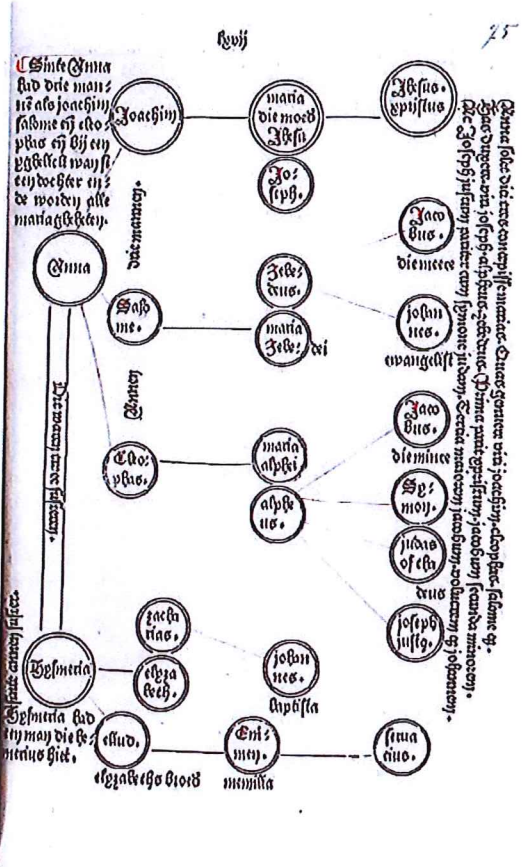 lxvij
75
Sinte Anna
had drie man-
nē als joachim
salome eñ cleo-
phas eñ bij een
yghelick wan si
een dochter en-
de worden alle
maria gheheten.
Joachim
maria
die moed̄
Jhesu
Jhesus.
xp̄istus
Jo-
seph.
Anna
drie mannen.
Annen
Jaco
bus.
die meere
Salo
me.
Zebe-
deus.
maria
Zebe-
dei
johan
nes.
ewangelist
Cleo-
phas.
maria
alphei
alphe
us.
Jaco
bus.
die minre
Sy-
mon.
judas
of tha
deus
joseph
justꝯ.
Die waren twee susteren.
Hysmeria
zacha
rias.
elyza
beth.
johan
nes.
baptista
Hysmeria had
een man die he-
merius hiet.
eliud.
elyzabeths broed̄
Emi-
men.
memilia
serua
cius.
Anna solet dici tres concepisse marias. Quas genuere viri joachim. cleophas. salome qꝫ.
Has duxere viri joseph. alpheus. zebedeus. Prima parit xp̄istum. jacobum secunda minorem.
Et Joseph justum pariter cum symone judam. Tercia maiorem jacobum. volucrem qꝫ johannem.